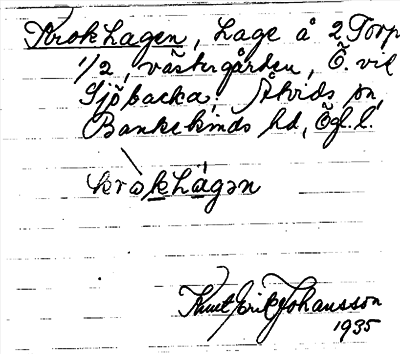 Krokhagen, Lage å 2 Torp
1/2, västergården, Ö. vid
Sjöbacka, Åtvids sn,
Bankekinds hd, Ögl. l.
kròkhágən
Knut Erik Johansson
1935